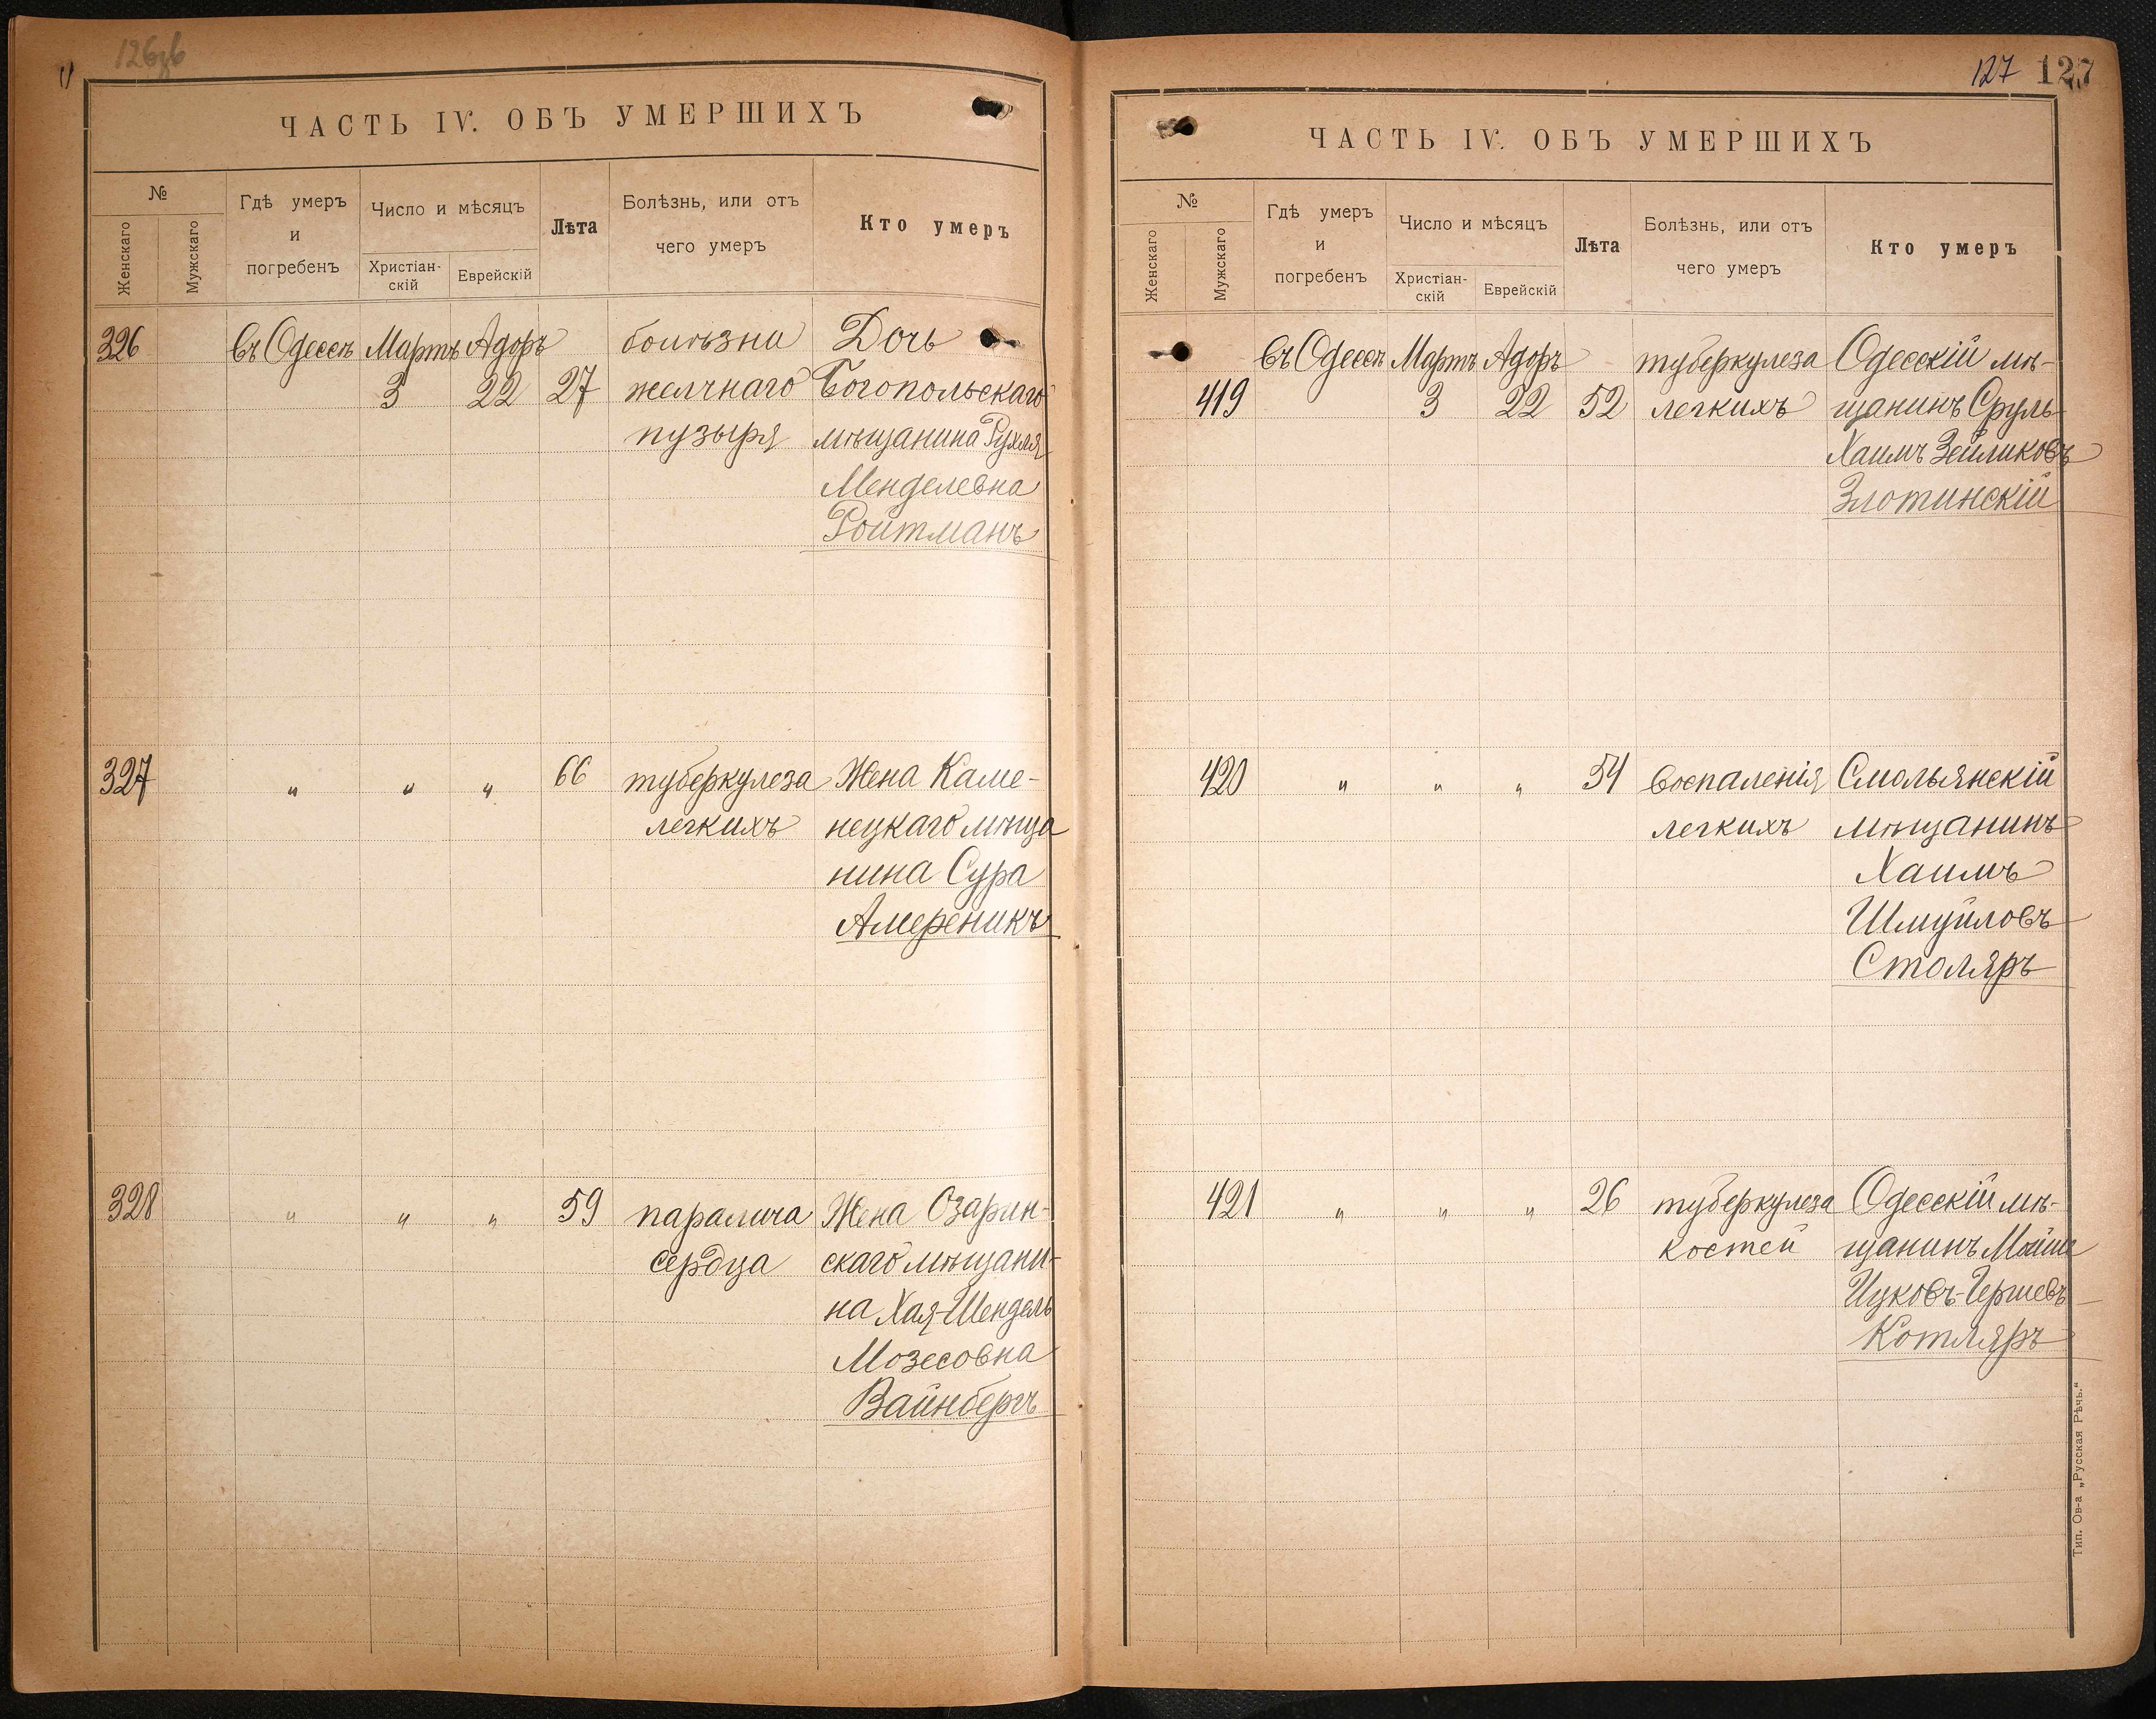 126об
ЧАСТЬ IV. ОБЪ УМЕРШИХЪ
№
Женскаго
Мужскаго
Гдѣ умеръ
и
погребенъ
Число и мѣсяцъ
Христіан-
скій
Еврейскій
Лѣта
Болѣзнь, или отъ
чего умеръ
Кто умеръ
326 въ Одессѣ Мартъ Адоръ болѣзни Дочь
3 22 27 желчнаго Богопольскаго
пузыря мѣщанина Рухля
Менделевна
Ройтманъ
327 " " " 66 туберкулеза Жена Каме-
легкихъ нецкаго мѣща
нина Сура
Амереникъ
328 " " " 59 паралича Жена Озарин-
сердца скаго мѣщани-
на Хая-Шендель
Мозесовна
Вайнбергъ
127 127
ЧАСТЬ IV. ОБЪ УМЕРШИХЪ
№
Женскаго
Мужскаго
Гдѣ умеръ
и
погребенъ
Число и мѣсяцъ
Христіан-
скій
Еврейскій
Лѣта
Болѣзнь, или отъ
чего умеръ
Кто умеръ
въ Одессѣ Мартъ Адоръ туберкулеза Одесскій мѣ-
419 3 22 52 легкихъ щанинъ Сруль-
Хаимъ Зейликовъ
Злотинскій
420 " " " 54 воспаленія Смольянскій
легкихъ мѣщанинъ
Хаимъ
Шмуйловъ
Столяръ
421 " " " 26 туберкулеза Одесскій мѣ-
костей щанинъ Мойше
Ицковъ-Гершевъ
Котляръ
Тип. Ов-а „Русская Рѣчь."